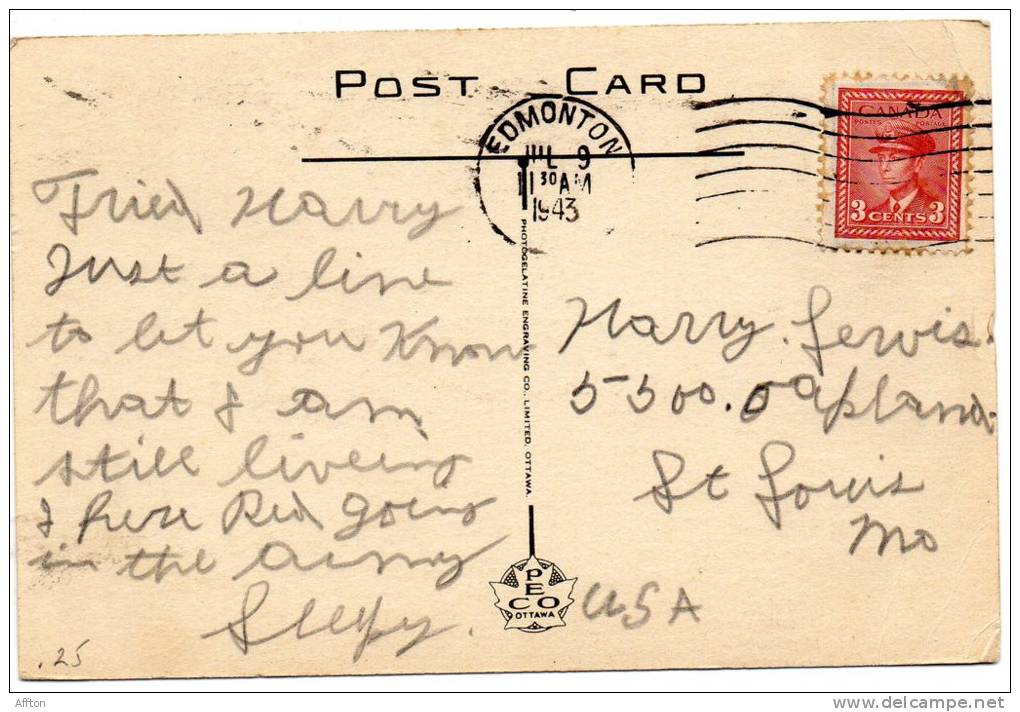 POST CARD
EDMONTON
JUL 9
11 30 AM
1943
CANADA
POSTES POSTAGE
3 CENTS 3
Fried Harry
Just a line
to let you Know
that I am
still liveing
I here Red going
in the army
Sleepy.
.25
PHOTOGELATINE ENGRAVING CO., LIMITED, OTTAWA.
PECO
OTTAWA
Harry Lewis.
5500.
St Louis
Mo
USA
Affton
delcampe.net